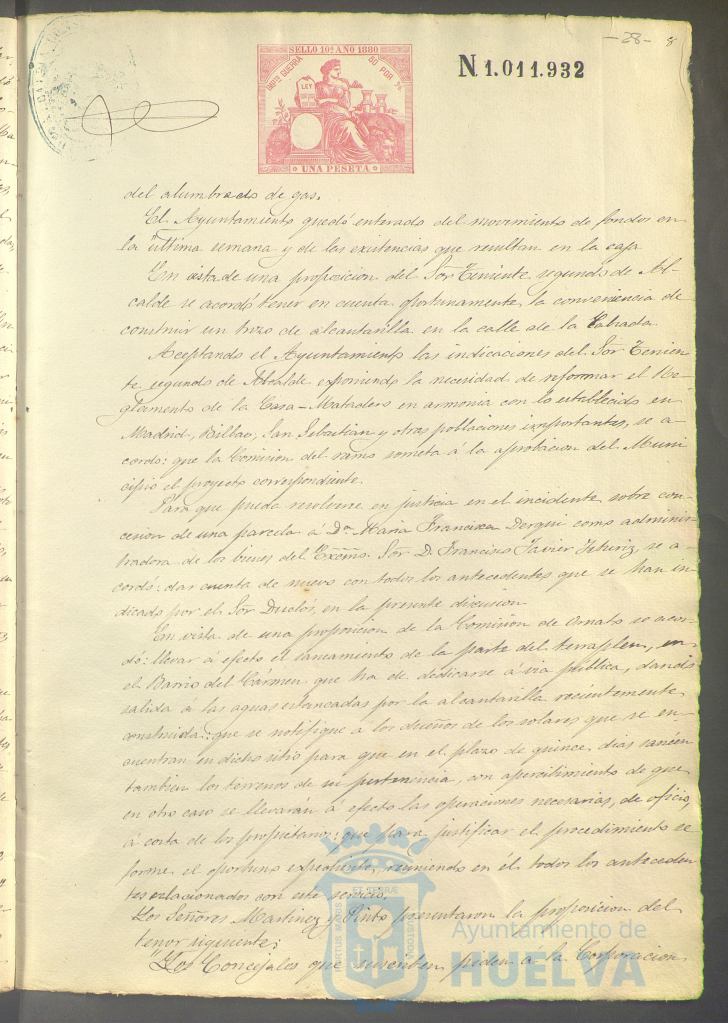 -28- 8
SELLO 10º AÑO 1880
IMPTO GUERRA 50 POR %
LEY
UNA PESETA
N 1.011.932
del alumbrado de gas.
El Ayuntamiento quedó enterado del movimiento de fondos en
la última semana y de las existencias que resultan en la caja
En vista de una proposicion del Sor Teniente segundo de Al-
calde se acordó tener en cuenta oportunamente la conveniencia de
construir un trozo de alcantarilla en la calle de la
Aceptando el Ayuntamiento las indicaciones del Sor Tenien-
te segundo de Alcalde exponiendo la necesidad de reformar el Re-
glamento de la Casa-Matadero en armonia con lo establecido en
Madrid, Bilbao, San Sebastian y otras poblaciones importantes, se a-
cordó: que la Comision del ramo someta á la aprobacion del Muni-
cipio el proyecto correspondiente.
Para que pueda resolverse en justicia en el incidente sobre con-
cesion de una parcela á Dª Maria Francisca Derqui como adminis-
tradora de los bienes del Excmo. Sor D. Francisco Javier se a-
cordó: dar cuenta de nuevo con todos los antecedentes que se han in-
dicado por el Sor Duclós, en la presente discusion
En vista de una proposicion de la Comision de Ornato se acor-
dó: llevar á efecto el saneamiento de la parte del terraplen, en
el Barrio del Carmen que ha de dedicarse á via pública, dando
salida á las aguas estancadas por la alcantarilla recientemente
construida: que se notifique á los dueños de los solares que se en-
cuentran en dicho sitio para que en el plazo de quince dias saneen
tambien los terrenos de su pertenencia, con apercibimiento de que
en otro caso se llevarán á efecto las operaciones necesarias, de oficio,
á costa de los propietarios: que para justificar el procedimiento se
forme el oportuno expediente, reuniendo en él todos los anteceden-
tes relacionados con este servicio.
Los Señores Martinez y Pinto presentaron la proposicion del
tenor siguiente:
"Los Concejales que suscriben piden á la Corporacion
Ayuntamiento de
HUELVA